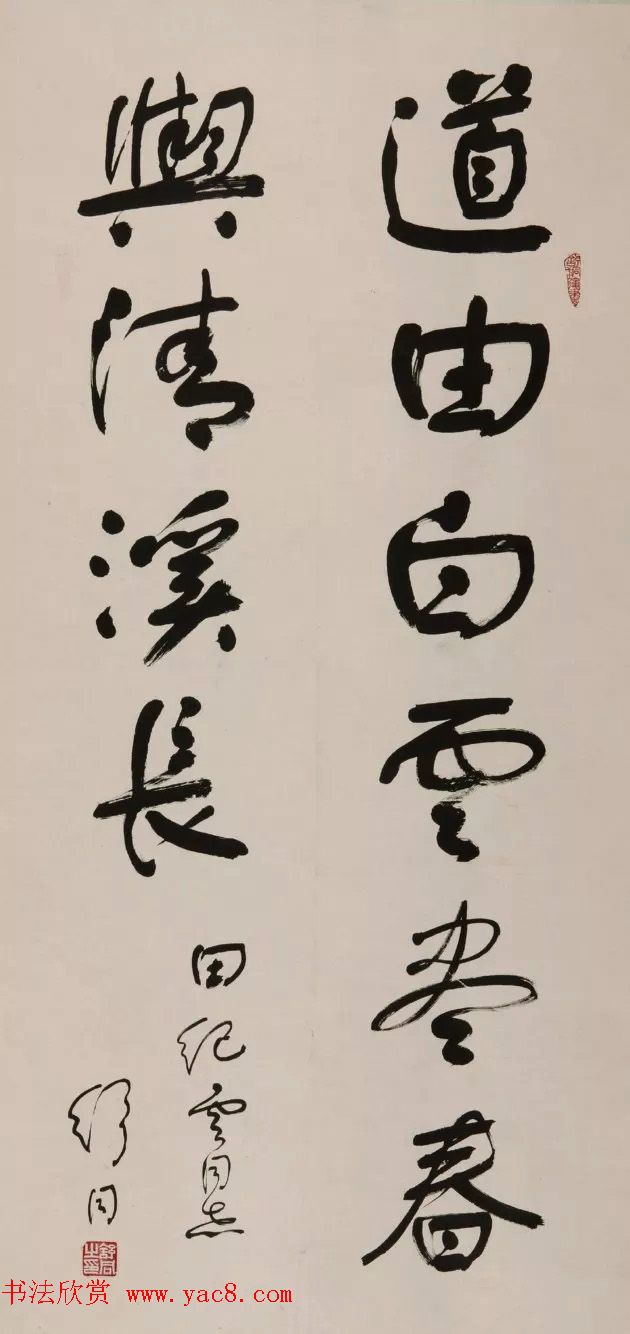 道由白云尽春
與清溪長
田纪雲同志
舒同
舒同之印
书法欣赏 www.yac8.com